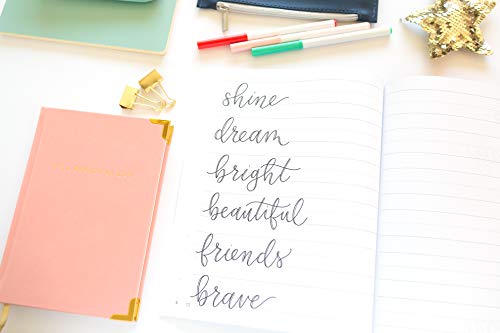 shine
dream
bright
beautiful
friends
brave